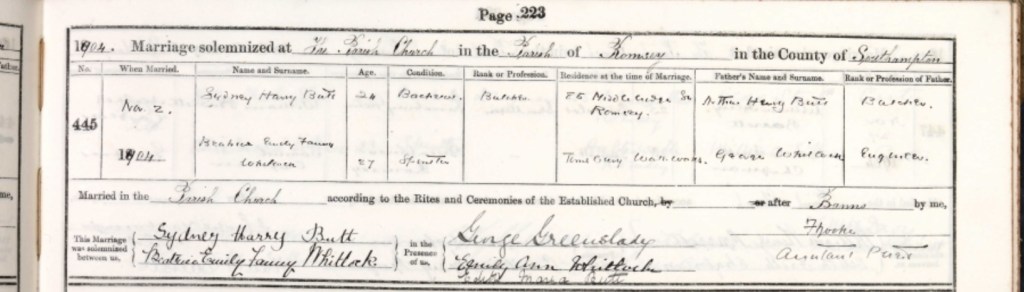 Page 223
1904. Marriage solemnized at The Parish Church in the Parish of Romsey in the County of Southampton
No. When Married. Name and Surname. Age. Condition. Rank or Profession. Residence at the time of Marriage. Father's Name and Surname. Rank or Profession of Father.
445 Nov. 2. 1904. Sydney Harry Butt 24 Bachelor. Butcher. 85 Middlebridge St Romsey. Arthur Henry Butt Butcher.
Beatrice Emily Fanny Whitlock 27 Spinster George Whitlock Engineer.
Married in the Parish Church according to the Rites and Ceremonies of the Established Church, by or after Banns by me,
This Marriage was solemnized between us, Sydney Harry Butt
Beatrice Emily Fanny Whittock.
in the Presence of us, George Greenslade
Emily Ann Whittock
Edith Maria Butt
Assistant Priest